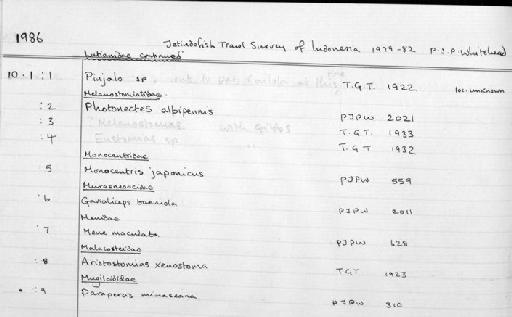 1986
Jetindofish Trawl Survey of Indonesia 1979-82 P.J.P. Whitehead
Lutianidae continued
10.1:1 Pinjalo sp. T.G.T. 1922 loc. unknown
Melanostomiatidae
:2 Photonectes albipennis PJPW 2021
:3 ? Melanostomias with T.G.T. 1933
:4 Eustomias sp T.G.T 1932
Monocentridae
:5 Monocentris japonicus PJPW 559
Muraenesocidae
:6 PJPW 2011
Menidae
:7 Mene maculata PJPW 628
Malacosteidae
:8 Aristostomias xenostoma TGT 1923
Mugiloididae
:9 PJPW 310